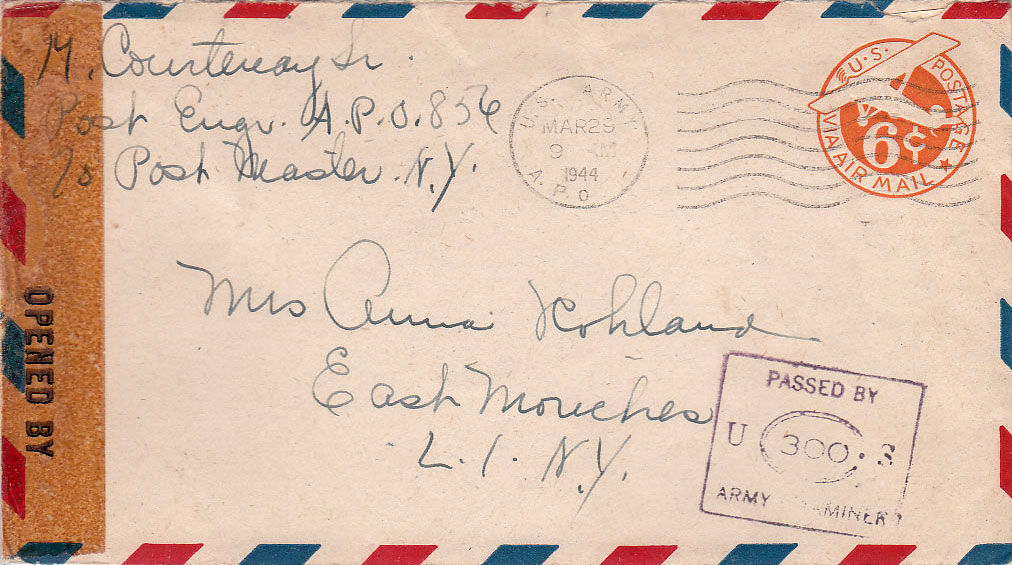 M. Courtenay Sr.
Post Engr. A.P.O. 856
c/o Post Master. N.Y.
U.S. ARMY
MAR 29
9 AM
1944
A.P.O
U.S. POSTAGE
6¢
VIA AIR MAIL
OPENED BY
Mrs Anna Kohland
East Moriches
L.I. N.Y.
PASSED BY
U 300 S
ARMY EXAMINER